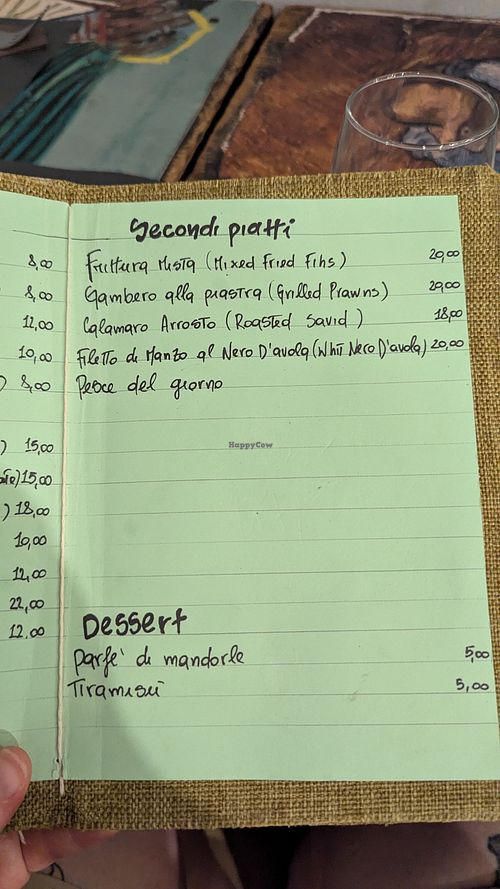 Secondi piatti
8,00
Frittura Mista (Mixed Fried Fihs) 20,00
8,00
Gambero alla piastra (Grilled Prawns) 20,00
12,00
Calamaro Arrosto (Roasted Savid) 18,00
10,00
Filetto di Manzo al Nero D'avola (Whit Nero D'avola) 20,00
) 8,00
Pesce del giorno
) 15,00
HappyCow
) 15,00
) 18,00
10,00
12,00
22,00
12.00
Dessert
Parfè di mandorle 5,00
Tiramisù 5,00